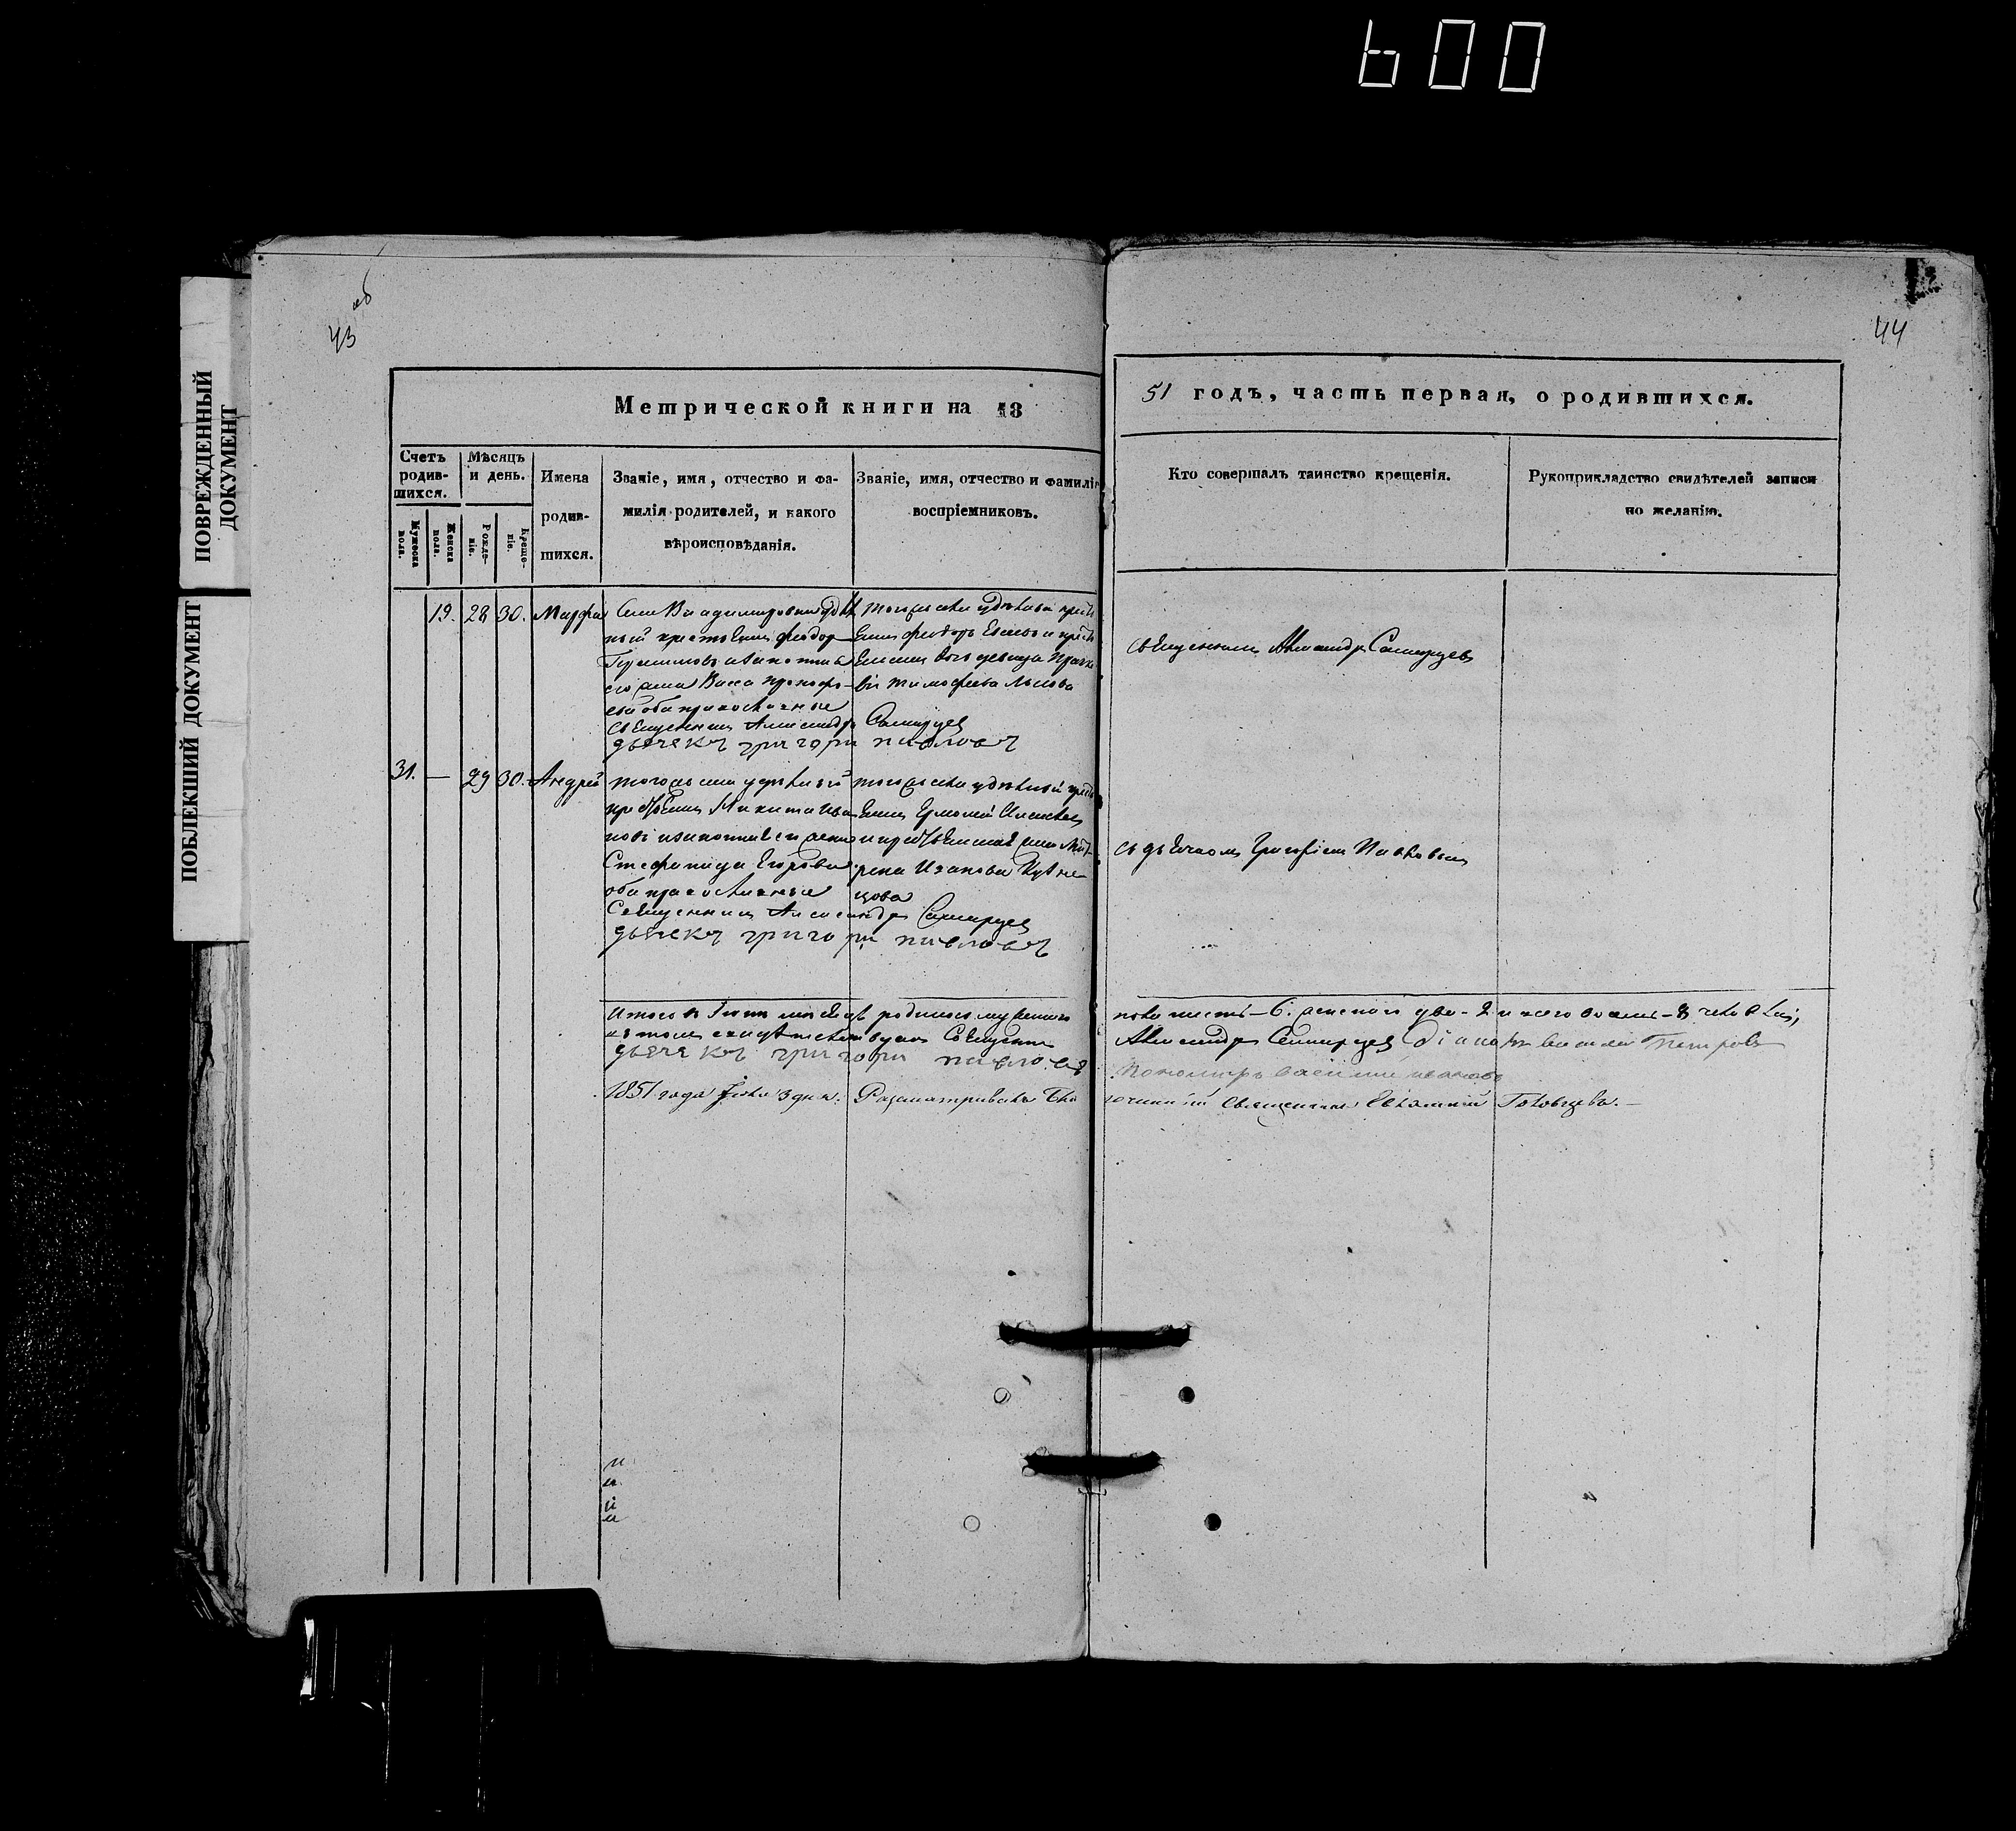 600
43 об
44
ПОВРЕЖДЕННЫЙ
ДОКУМЕНТ
ПОБЛЕКШИЙ ДОКУМЕНТ
Метрической книги на 18
51 годъ, часть первая, о родившихся.
Счетъ родив-шихся.
Мужеска пола.
Женска пола.
Мѣсяцъ и день.
Рожде-ніе.
Креще-ніе.
Имена родив-шихся.
Званіе, имя, отчество и фа-
милія родителей, и какого
вѣроисповѣданія.
Званіе, имя, отчество и фамилія
воспріемниковъ.
Кто совершалъ таинство крещенія.
Рукоприкладство свидѣтелей записи
по желанію.
19. 28 30. Марфа
Села Владимировки удѣль
ный крестьянинъ Феодор
Герасимовъ и законная
его жена Васса Прокофь
ева оба православные
Священникъ Александръ
дьячекъ григори павловъ
того села удѣльный кресть
янинъ Феодоръ и кресть
янская дочь девица
Тимофеева
Священникъ Александръ
31. — 29 30. Андрей
того села удѣльный
крестьянинъ Никита Ива
новъ и законная его жена
Стефанида Егорова
оба православные
Священникъ Александръ
дьячекъ григори павловъ
того села удѣльный кресть
янинъ Ермолай Алексеевъ
и крестьянская жена Мат
рена Иванова Кузне
цова
съ дьячкомъ Григоріемъ Павловымъ
Итого в Іюнѣ месяцѣ родилось мужескаго
пола шесть - 6. женскаго две - 2 и всего восемь - 8 человѣкъ,
в томъ свидѣтельствуемъ Священникъ
Александръ Діаконъ Василій Петровъ
дьячекъ григори павловъ
Пономарь Василий Ивановъ
1851 года Іюля 3 дня. Разсматривалъ Бла
гочинный Священникъ Евѳимій